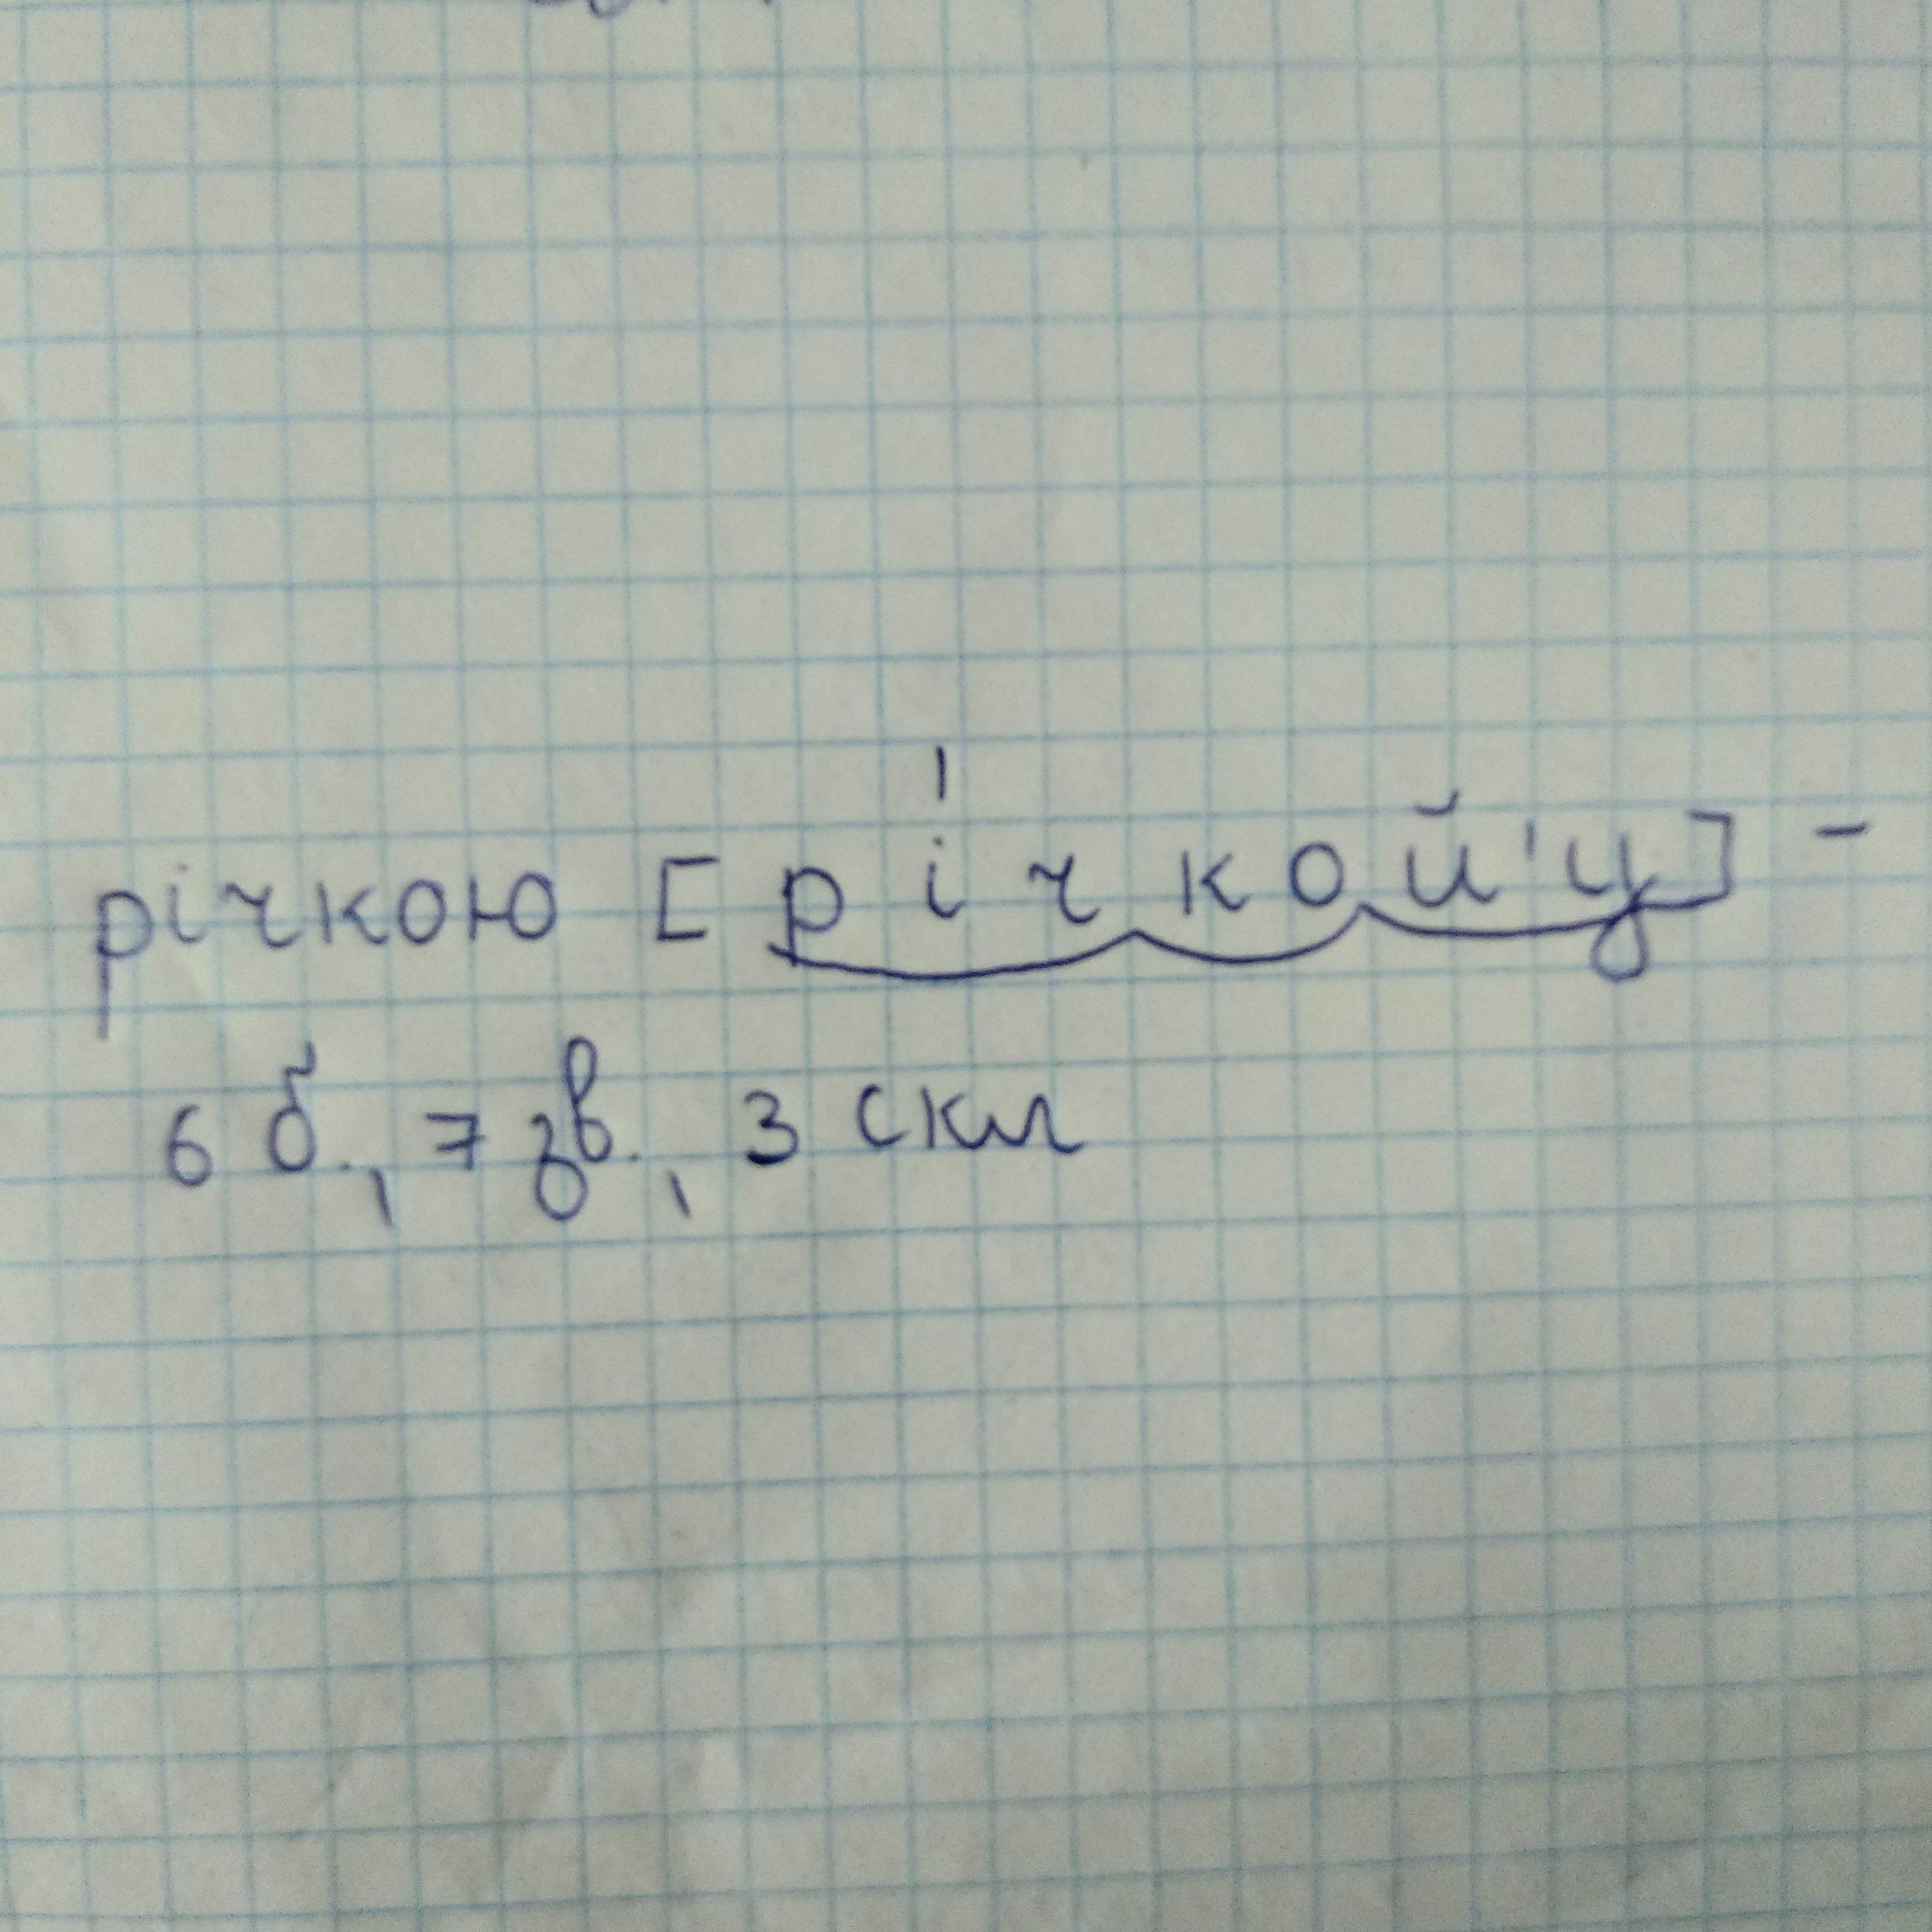 річкою [річкой'у] -
6 б., 7 зв., 3 скл